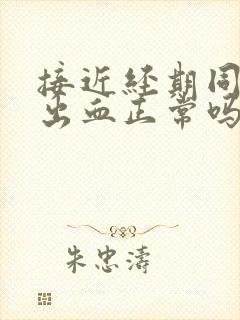 接近经期同
出血正常吗
朱忠涛